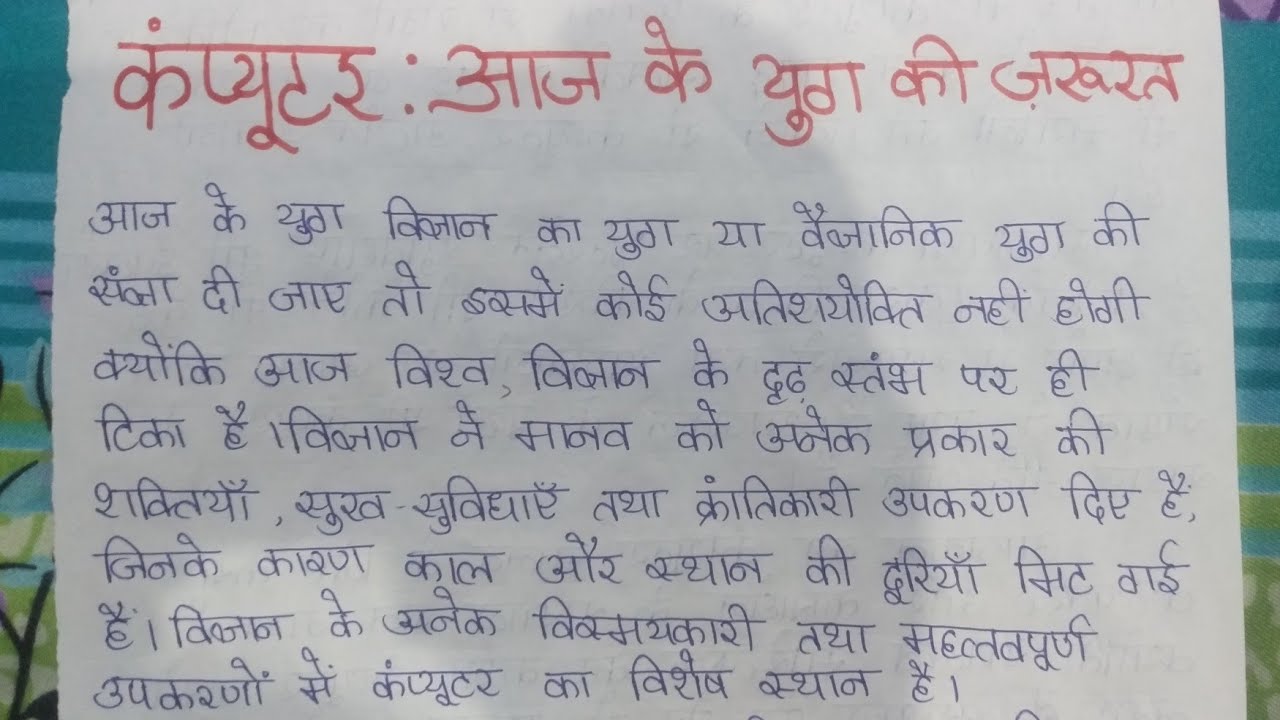 कंप्यूटर : आज के युग की ज़रूरत
आज के युग विज्ञान का युग या वैज्ञानिक युग की
संज्ञा दी जाए तो इसमें कोई अतिशयोक्ति नहीं होगी
क्योंकि आज विश्व, विज्ञान के दृढ़ स्तंभ पर ही
टिका है। विज्ञान ने मानव को अनेक प्रकार की
शक्तियाँ, सुख-सुविधाएँ तथा क्रांतिकारी उपकरण दिए हैं,
जिनके कारण काल और स्थान की दूरियाँ मिट गई
हैं। विज्ञान के अनेक विस्मयकारी तथा महत्तवपूर्ण
उपकरणों में कंप्यूटर का विशेष स्थान है।